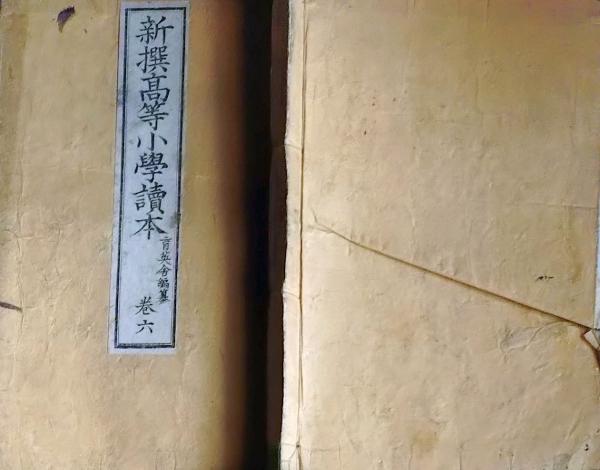 新撰高等小學讀本
育英舍編纂
卷六